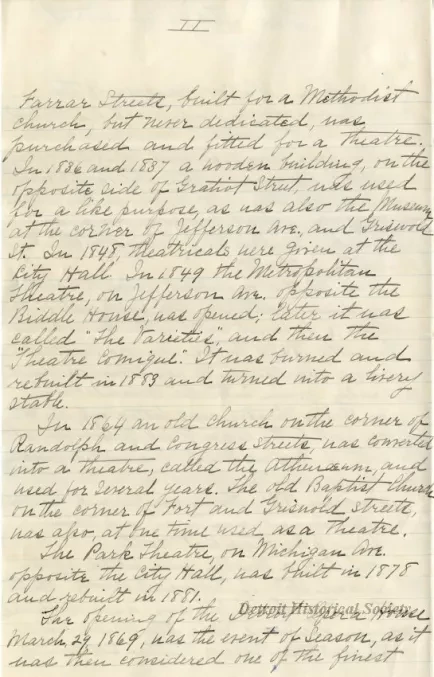 II
Farrar Streets, built for a Methodist
church, but never dedicated, was
purchased and fitted for a Theatre.
In 1836 and 1837 a wooden building, on the
opposite side of Gratiot Street, was used
for a like purpose, as was also the Museum
at the corner of Jefferson Ave. and Griswold
St. In 1848, theatricals were given at the
City Hall. In 1849 the Metropolitan
Theatre, on Jefferson Ave. opposite the
Biddle House, was opened; later it was
called "The Varieties", and then the
"Theatre Comique". It was burned and
rebuilt in 1883 and turned into a livery
stable.
In 1864 an old church on the corner of
Randolph and Congress streets, was converted
into a theatre, called the Athenæum, and
used for several years. The old Baptist Church
on the corner of Fort and Griswold streets,
was also, at one time used as a Theatre.
The Park Theatre, on Michigan Ave.
opposite the City Hall, was built in 1878
and rebuilt in 1881.
Detroit Historical Society
The opening of the Detroit Opera House
March 29 1869, was the event of Season, as it
was then considered one of the finest